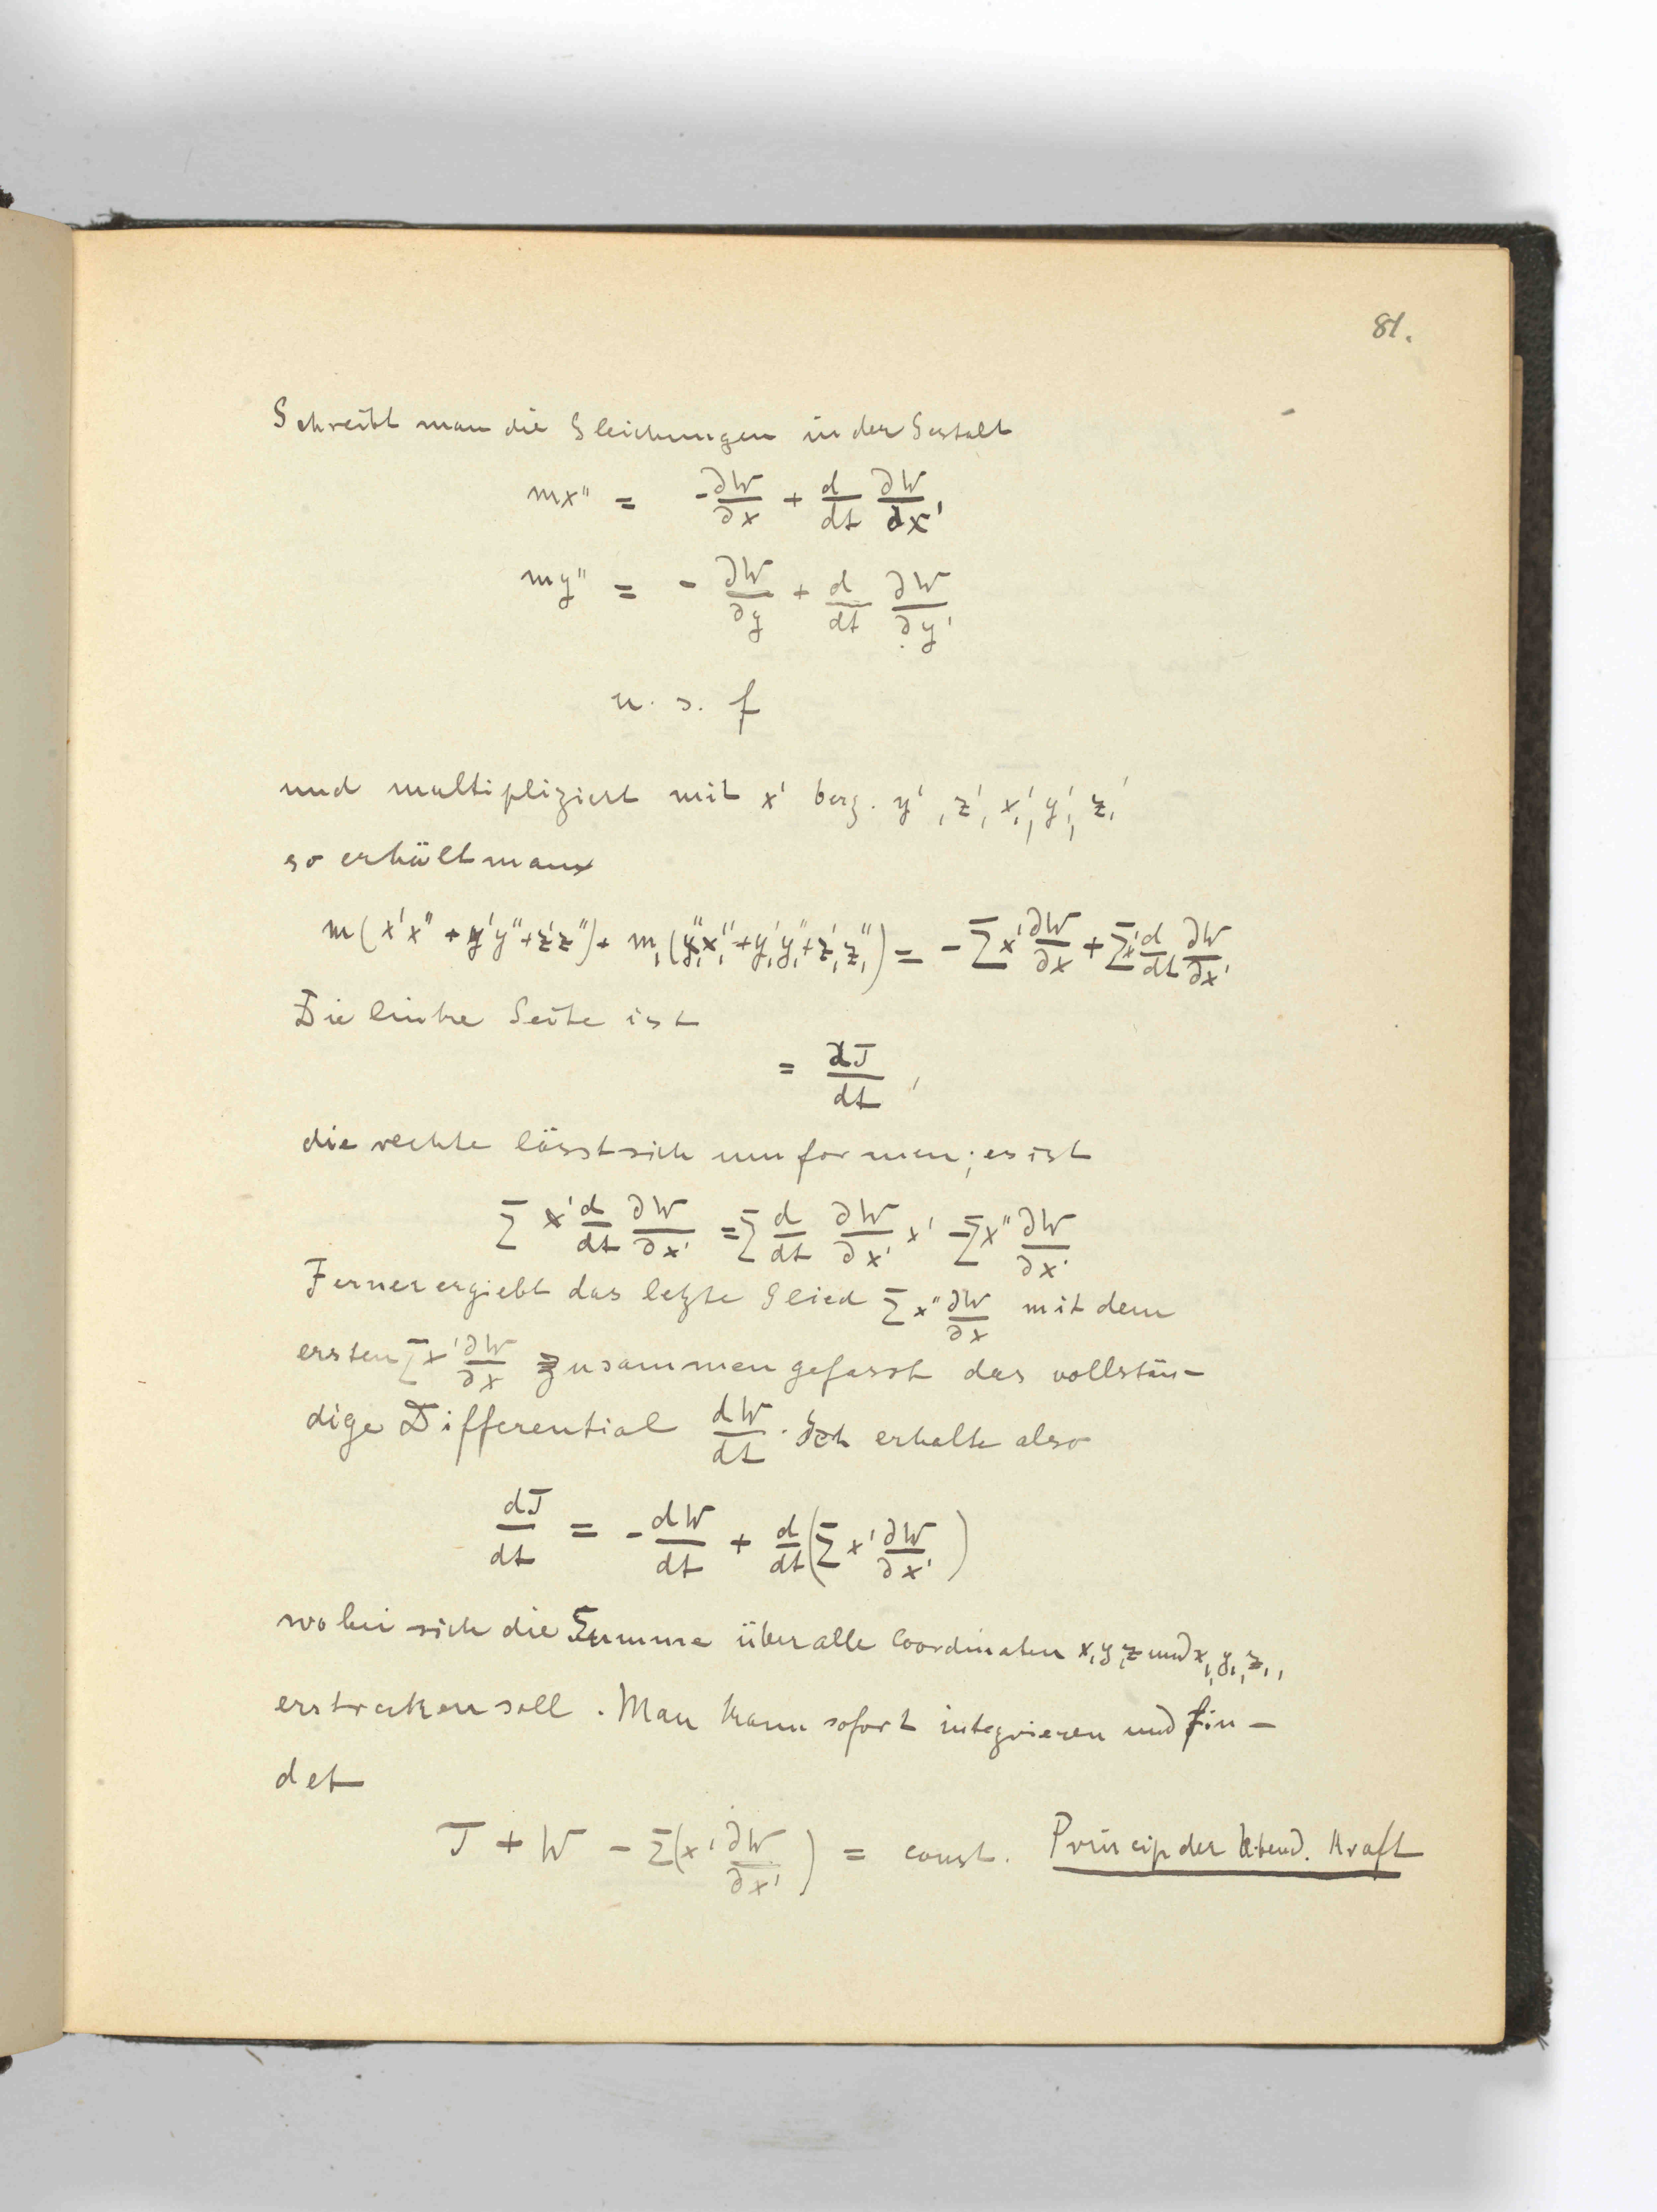 81.
Schreibt man die Gleichungen in der Gestalt
mx'' = -∂W/∂x + d/dt ∂W/∂x'
my'' = - ∂W/∂y + d/dt ∂W/∂y'
u. s. f
und multipliziert mit x' bezg. y', z', x₁', y₁', z₁'
so erhält man
m(x'x'' + y'y'' + z'z'') + m₁(x₁''x₁' + y₁'y₁'' + z₁'z₁'') = - ∑x' ∂W/∂x + ∑x' d/dt ∂W/∂x'
Die linke Seite ist
= dT/dt ,
die rechte lässt sich umformen; es ist
∑ x' d/dt ∂W/∂x' = ∑ d/dt ∂W/∂x' x' - ∑x'' ∂W/∂x'
Ferner ergiebt das letzte Glied ∑ x'' ∂W/∂x mit dem
ersten ∑x' ∂W/∂x zusammengefasst das vollstän-
dige Differential dW/dt. Ich erhalte also
dT/dt = - dW/dt + d/dt(∑ x' ∂W/∂x')
wobei sich die Summe über alle Coordinaten x, y, z und x₁, y₁, z₁,
erstrecken soll. Man kann sofort integrieren und fin-
det
T + W - ∑(x' ∂W/∂x') = const. Princip der lebend. Kraft